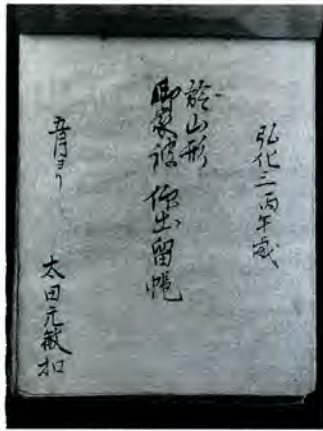 弘化三丙午歳
於山形
御家被仰出留帳
五月ヨリ
太田元敏扣